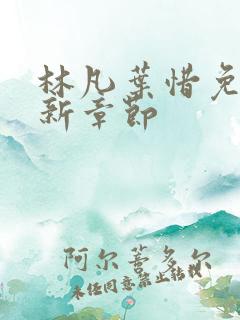 林凡葉惜免
新章節
阿尔萫多尔
未经同意禁止转载